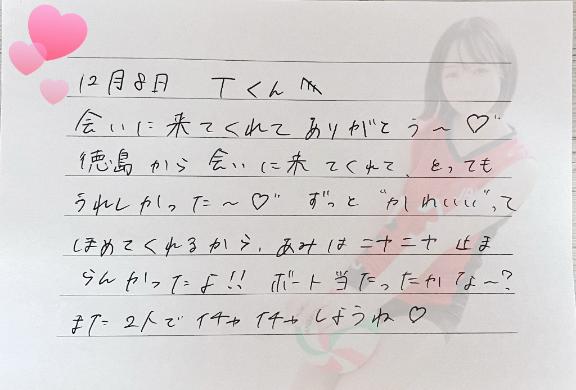 12月8日 Tくんへ
会いに来てくれてありがとう〜♡
徳島から会いに来てくれて、とっても
うれしかった〜♡ ずっと"かわいい"って
ほめてくれるから、あみはニヤニヤ止ま
らんかったよ!! ボート当たったかな〜?
また2人でイチャイチャしようね♡